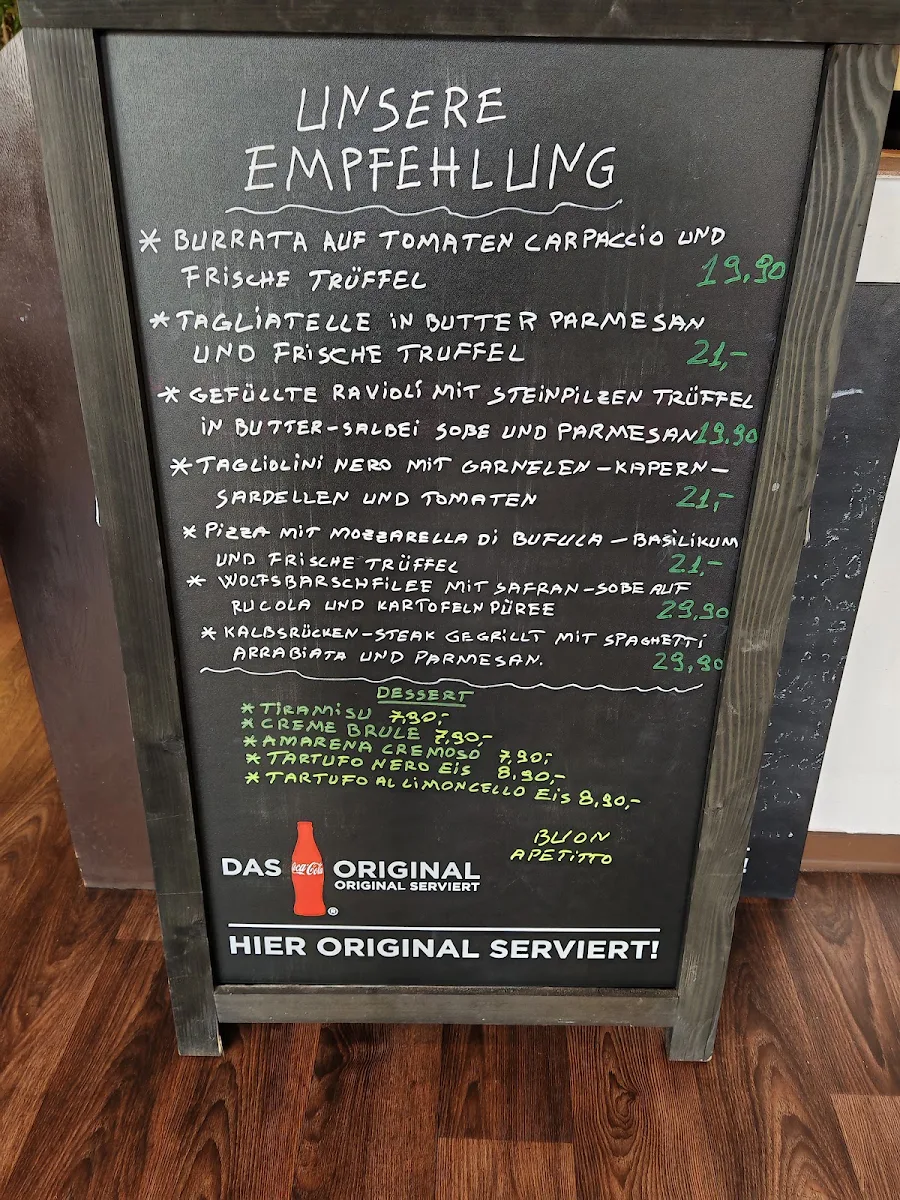 UNSERE
EMPFEHLUNG
* BURRATA AUF TOMATEN CARPACCIO UND
FRISCHE TRÜFFEL 19,90
* TAGLIATELLE IN BUTTER PARMESAN
UND FRISCHE TRUFFEL 21,-
* GEFÜLLTE RAVIOLI MIT STEINPILZEN TRÜFFEL
IN BUTTER-SALBEI SOßE UND PARMESAN 19.90
* TAGLIOLINI NERO MIT GARNELEN-KAPERN-
SARDELLEN UND TOMATEN 21,-
* PIZZA MIT MOZZARELLA DI BUFULA - BASILIKUM
UND FRISCHE TRÜFFEL 21,-
* WOLFSBARSCHFILEE MIT SAFRAN-SOßE AUF
RUCOLA UND KARTOFELN PÜREE 29,90
* KALBSRÜCKEN-STEAK GEGRILLT MIT SPAGHETTI
ARRABIATA UND PARMESAN. 29,90
DESSERT
* TIRAMISU 7,90,-
* CREME BRULE 7,90,-
* AMARENA CREMOSO 7,90,-
* TARTUFO NERO EIS 8,90,-
* TARTUFO AL LIMONCELLO EIS 8,90,-
BUON
APETITTO
DAS Coca-Cola ORIGINAL
ORIGINAL SERVIERT
®
HIER ORIGINAL SERVIERT!